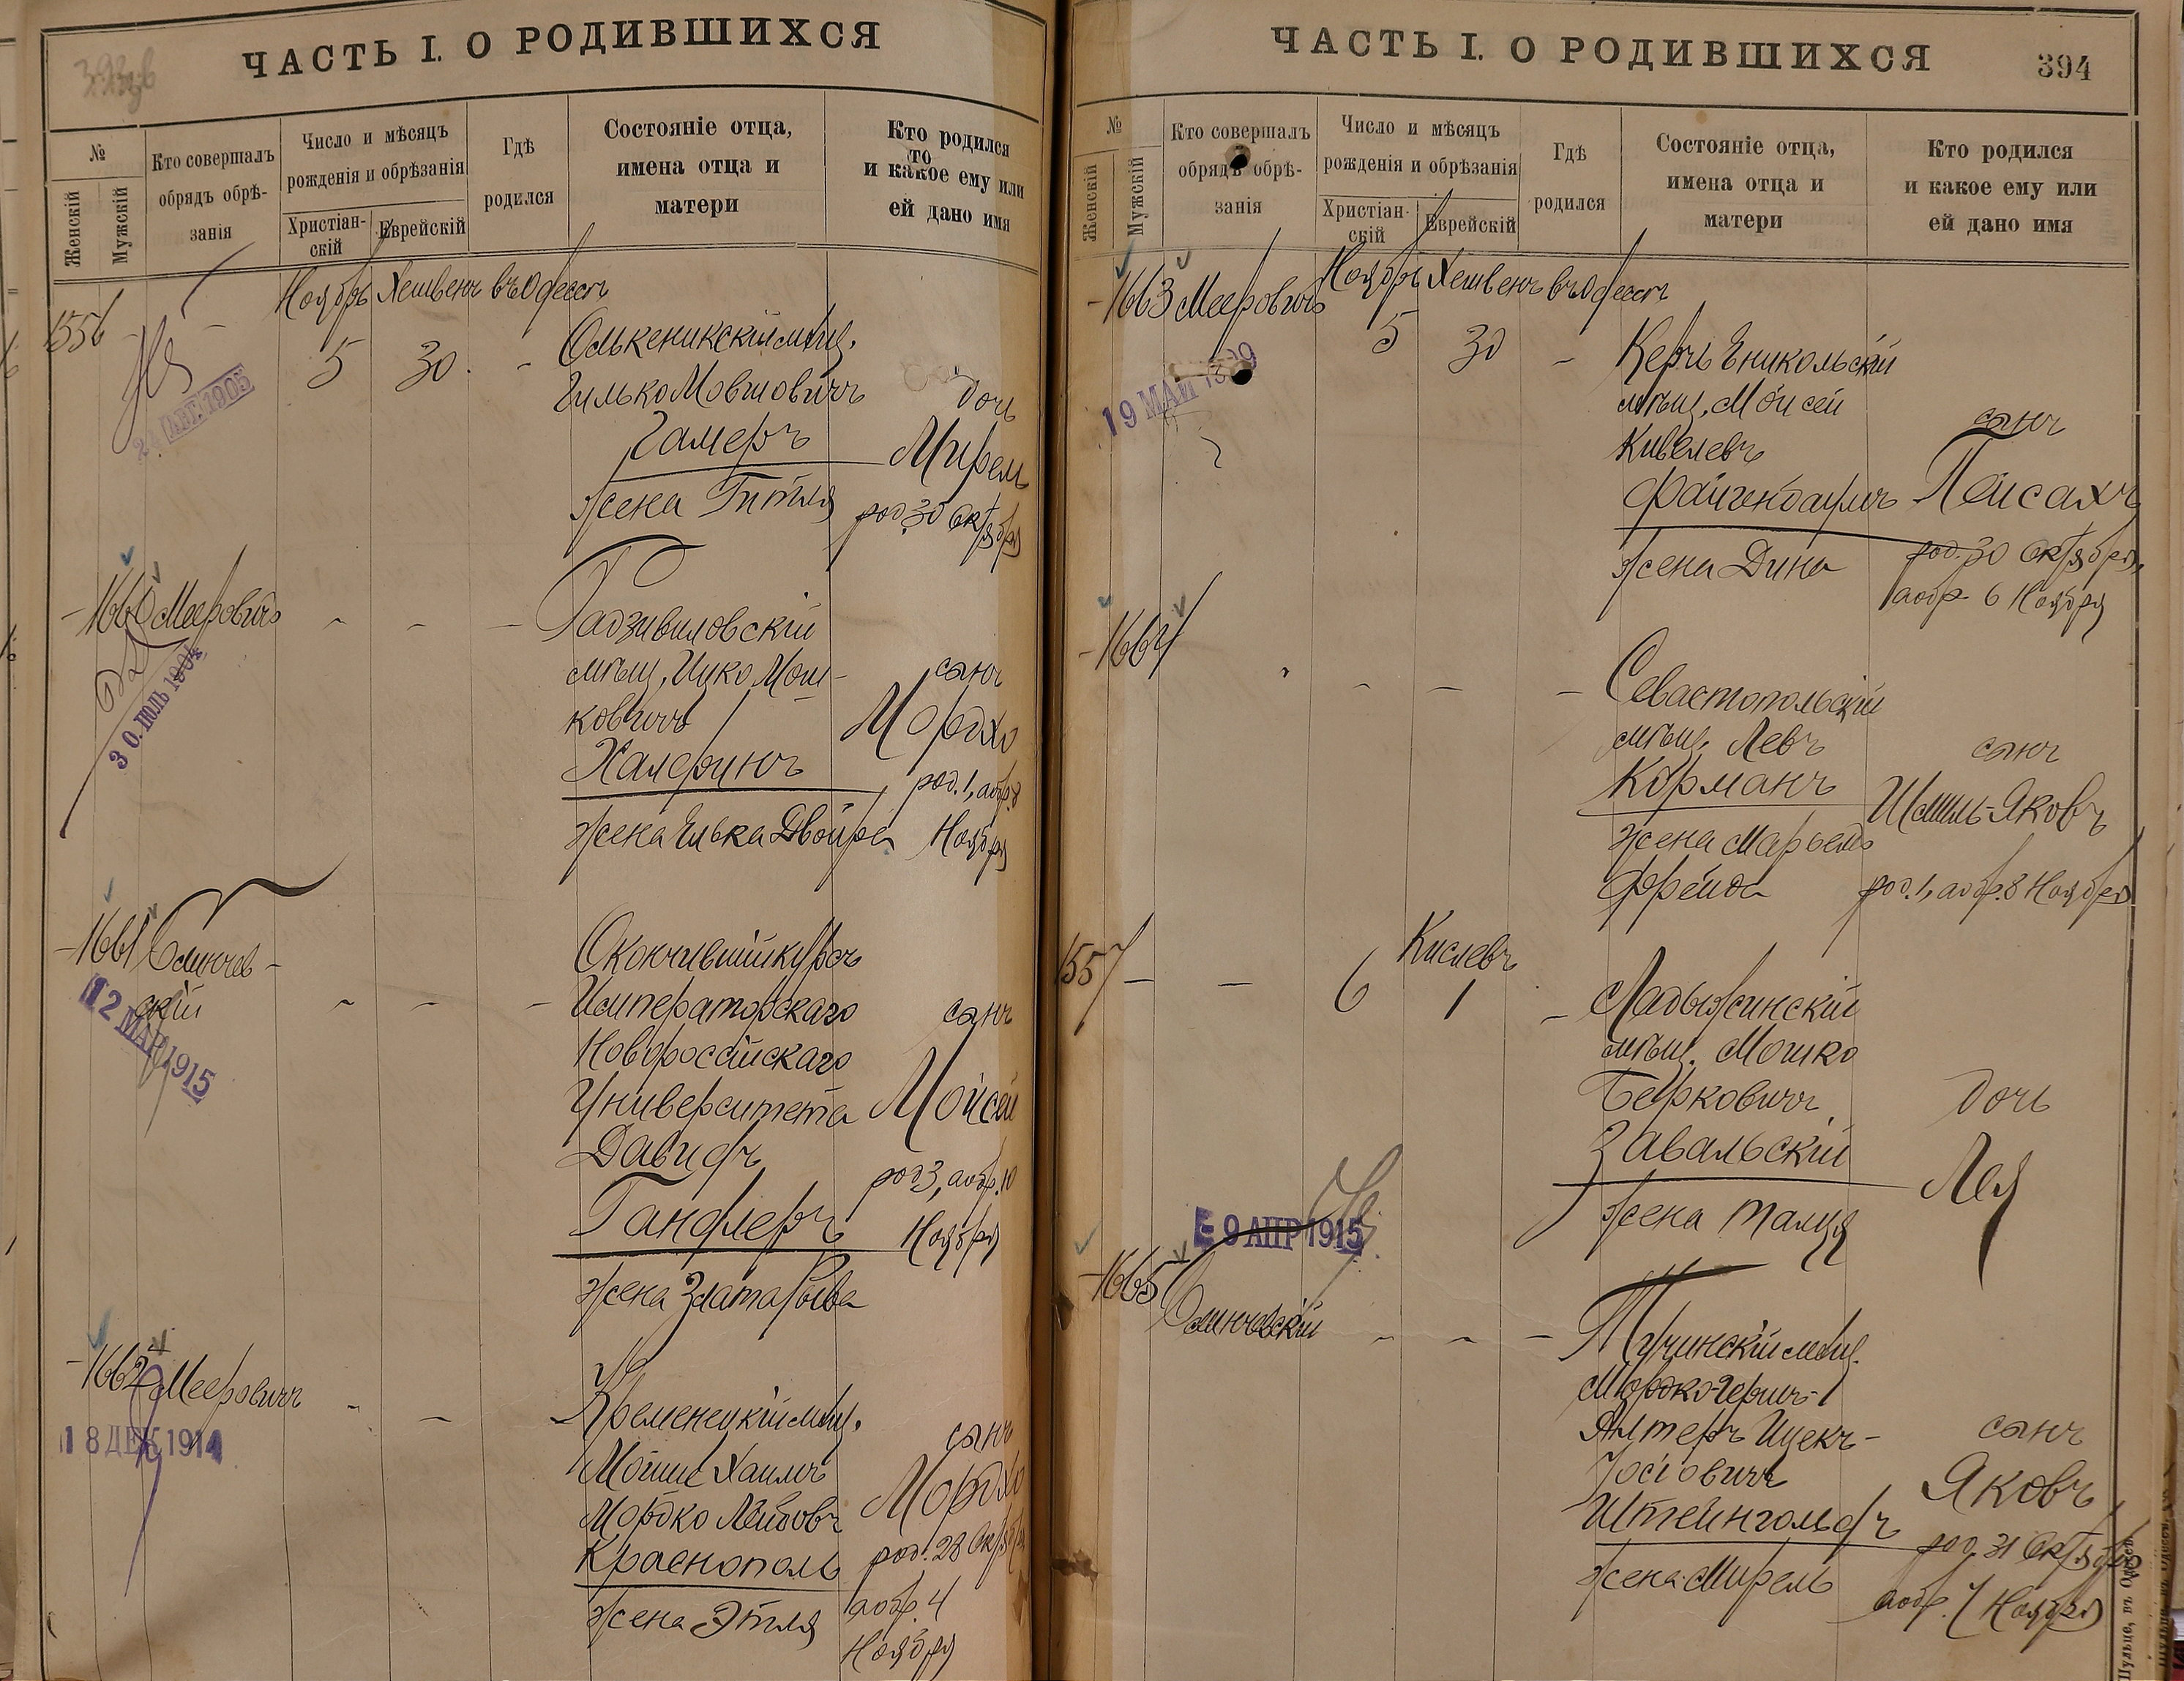 ЧАСТЬ I. О РОДИВШИХСЯ
№
Женскій
Мужскій
Кто совершалъ
обрядъ обрѣ-
занія
Число и мѣсяцъ
рожденія и обрѣзанія
Христіан-
скій
Еврейскій
Гдѣ
родился
Состояніе отца,
имена отца и
матери
Кто родился
то
и какое ему или
ей дано имя
Ноябрь Хешвенъ въ Одессѣ
1556 - - 5 30 - Олькеникскій мѣщ.
Гилько Мовшовичъ
Гамеръ
жена Гитля
дочь
Мирель
род. 30 Октября
АВГ. 1905
1660 Мееровичъ - - - Радзивиловскій
мѣщ. Ицко Мош-
ковичъ
Халфинъ
жена Елька Двойра
сынъ
Мордхо
род. 1, а обр. 8
Ноября
30. ІЮЛЬ 1904
1661 Слинчев-
скій - - - Окончившій курсъ
Императорскаго
Новороссійскаго
Университета
Давидъ
Гандлеръ
жена Злата Рыва
сынъ
Мойсей
род 3, а обр. 10
Ноября
12 МАР 1915
1662 Мееровичъ - - Кременецкій мѣщ.
Мойше Хаимъ
Мордко Лейбовъ
Краснополь
жена Этля
сынъ
Мордхо
род. 28 Октября
а обр. 4
Ноября
18 ДЕК 1914
ЧАСТЬ I. О РОДИВШИХСЯ
394
№
Женскій
Мужскій
Кто совершалъ
обрядъ обрѣ-
занія
Число и мѣсяцъ
рожденія и обрѣзанія
Христіан-
скій
Еврейскій
Гдѣ
родился
Состояніе отца,
имена отца и
матери
Кто родился
и какое ему или
ей дано имя
Ноябрь Хешвенъ въ Одессѣ
1663 Мееровичъ 5 30 - Керчь Еникольскій
мѣщ. Мойсей
Кивелевъ
Файгенбаумъ
жена Дина
сынъ
Пейсахъ
род. 30 Октября,
а обр. 6 Ноября
19 МАЙ
1664 - - - Севастопольскій
мѣщ. Левъ
Корманъ
жена Марьемъ
Фрейда
сынъ
Шмиль-Яковъ
род. 1, а обр. 8 Ноября
Кислевъ
1557 - - 6 1 - Ладыжинскій
мѣщ. Мошко
Берковичъ
Завальскій
жена Малця
дочь
Лея
9 АПР 1915
1665 Слинчевскій - - - Тучинскій мѣщ.
Мордко-Гершъ-
Алтеръ Ицекъ-
Іосіовичъ
Штейнгольдъ
жена Мирель
сынъ
Яковъ
род. 31 Октября
а обр. 7 Ноября
Шульце, въ Одессѣ